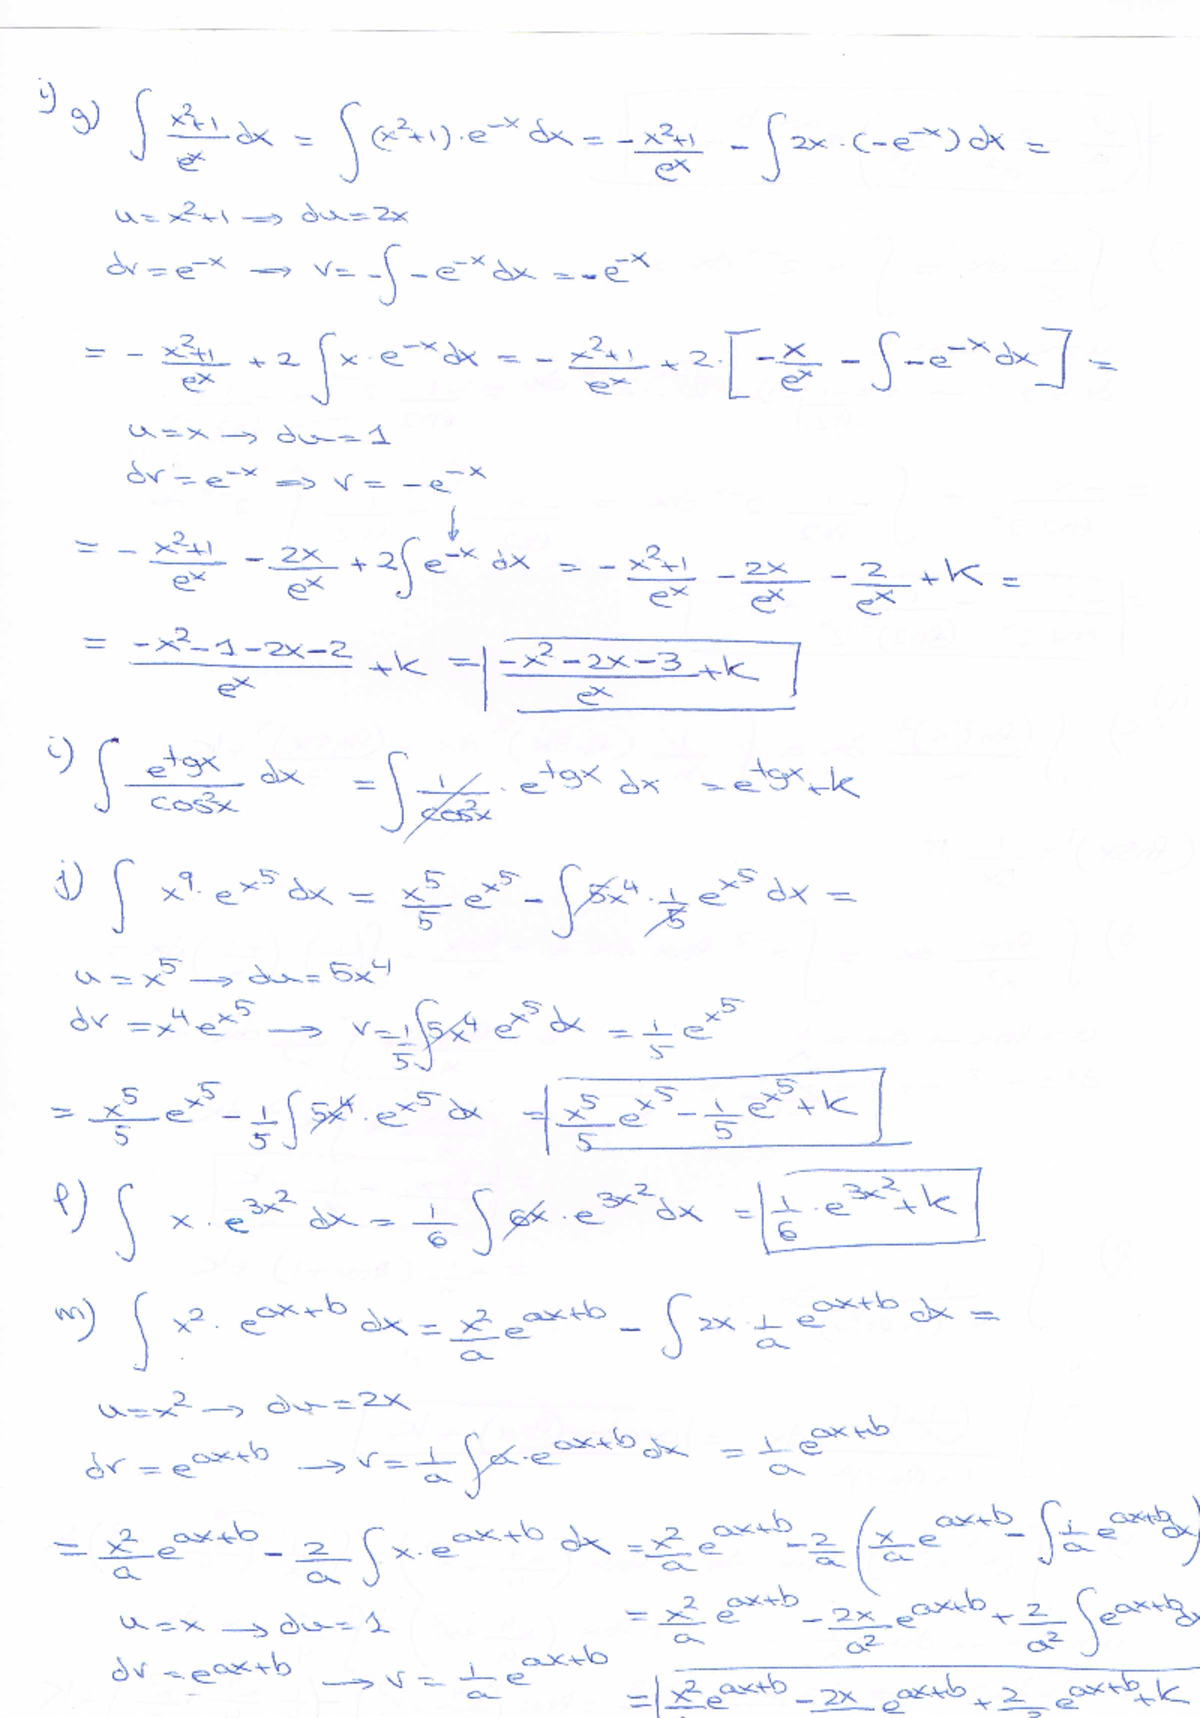 1) g) ∫ (x²+1)/eˣ dx = ∫ (x²+1)·e⁻ˣ dx = - (x²+1)/eˣ - ∫ 2x·(-e⁻ˣ) dx =
u = x²+1 → du = 2x
dv = e⁻ˣ → v = -∫ -e⁻ˣ dx = -e⁻ˣ
= - (x²+1)/eˣ + 2 ∫ x·e⁻ˣ dx = - (x²+1)/eˣ + 2·[ - x/eˣ - ∫ -e⁻ˣ dx ] =
u = x → du = 1
dv = e⁻ˣ → v = -e⁻ˣ
= - (x²+1)/eˣ - 2x/eˣ + 2∫ e⁻ˣ dx = - (x²+1)/eˣ - 2x/eˣ - 2/eˣ + K =
= (-x²-1-2x-2)/eˣ + K = (-x²-2x-3)/eˣ + K
i) ∫ e^(tgx)/cos²x dx = ∫ 1/cos²x · e^(tgx) dx = e^(tgx) + K
j) ∫ x⁹·e^(x⁵) dx = x⁵/5 e^(x⁵) - ∫ 5x⁴·1/5 e^(x⁵) dx =
u = x⁵ → du = 5x⁴
dv = x⁴e^(x⁵) → v = 1/5 ∫ 5x⁴ e^(x⁵) dx = 1/5 e^(x⁵)
= x⁵/5 e^(x⁵) - 1/5 ∫ 5x⁴·e^(x⁵) dx = x⁵/5 e^(x⁵) - 1/5 e^(x⁵) + K
l) ∫ x·e^(3x²) dx = 1/6 ∫ 6x·e^(3x²) dx = 1/6·e^(3x²) + K
m) ∫ x²·e^(ax+b) dx = x²/a e^(ax+b) - ∫ 2x·1/a e^(ax+b) dx =
u = x² → du = 2x
dv = e^(ax+b) → v = 1/a ∫ a·e^(ax+b) dx = 1/a e^(ax+b)
= x²/a e^(ax+b) - 2/a ∫ x·e^(ax+b) dx = x²/a e^(ax+b) - 2/a (x/a e^(ax+b) - ∫ 1/a e^(ax+b) dx)
u = x → du = 1
= x²/a e^(ax+b) - 2x/a² e^(ax+b) + 2/a² ∫ e^(ax+b) dx
dv = e^(ax+b) → v = 1/a e^(ax+b)
= x² e^(ax+b) - 2x e^(ax+b) + 2 e^(ax+b) + K